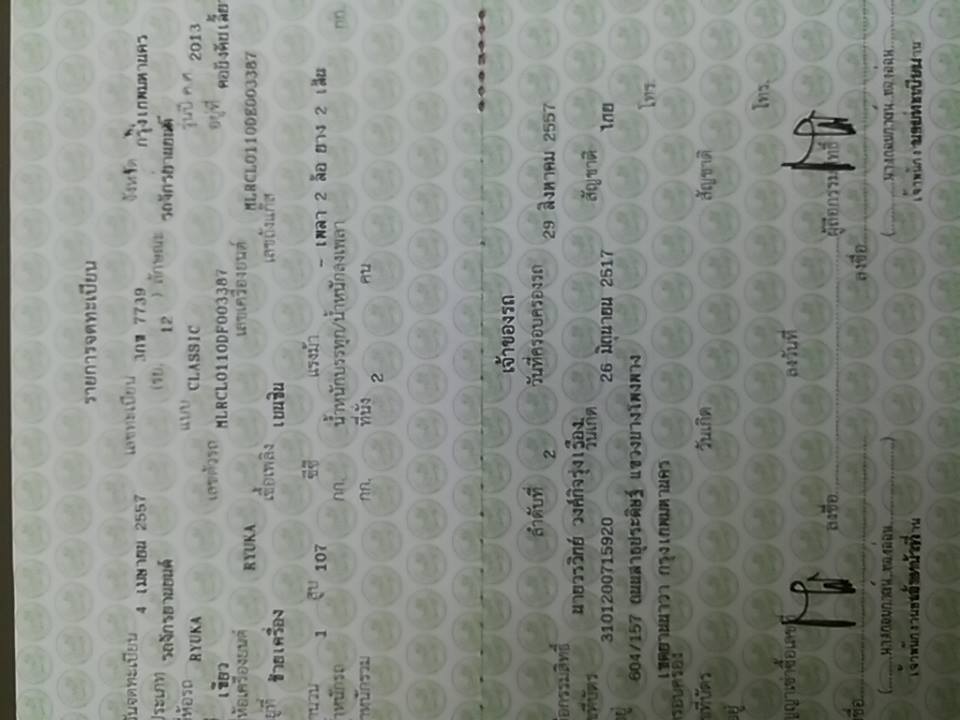 รายการจดทะเบียน
วันจดทะเบียน 4 เมษายน 2557 เลขทะเบียน 7739 จังหวัด กรุงเทพมหานคร
ประเภท รถจักรยานยนต์ (รย. 12 ) ลักษณะ รถจักรยานยนต์
ยี่ห้อรถ RYUKA แบบ CLASSIC รุ่นปี ค.ศ. 2013
สี เขียว เลขตัวรถ MLRCL0110DF003387 อยู่ที่ คอบังคับเลี้ยว
ยี่ห้อเครื่องยนต์ RYUKA เลขเครื่องยนต์ MLRCL0110DE003387
อยู่ที่ ซ้ายเครื่อง เชื้อเพลิง เบนซิน เลขถังแก๊ส
จำนวน 1 สูบ 107 ซีซี แรงม้า - เพลา 2 ล้อ ยาง 2 เส้น
น้ำหนักรถ กก. น้ำหนักบรรทุก/น้ำหนักลงเพลา กก.
น้ำหนักรวม กก. ที่นั่ง 2 คน
เจ้าของรถ
ลำดับที่ 2 วันที่ครอบครองรถ 29 สิงหาคม 2557
ผู้ถือกรรมสิทธิ์ นายวรวิทย์ วงศ์กิจรุ่งเรือง
เลขที่บัตร 3101200715920 วันเกิด 26 มิถุนายน 2517 สัญชาติ ไทย
ที่อยู่ 604/157 ถนนสาธุประดิษฐ์ แขวงบางโพงพาง
เขตยานนาวา กรุงเทพมหานคร โทร.
ผู้ครอบครอง
เลขที่บัตร วันเกิด สัญชาติ
ที่อยู่ โทร.
สัญญาเช่าซื้อเลขที่ ลงวันที่
ลงชื่อ ผู้ถือกรรมสิทธิ์
ลงชื่อ ลงชื่อ